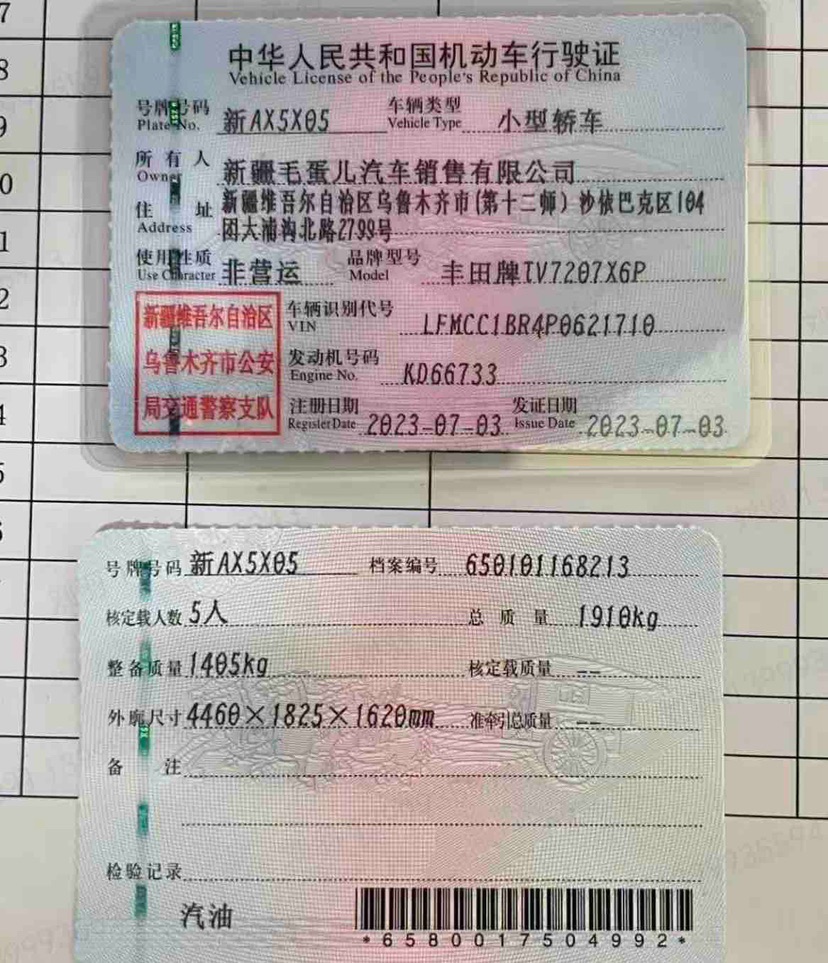 7
8
9
0
1
2
3
4
5
6
中华人民共和国机动车行驶证
Vehicle License of the People's Republic of China
号牌号码 新AX5X05 车辆类型 小型轿车
Plate No. Vehicle Type
所有人 新疆毛蛋儿汽车销售有限公司
Owner
住址 新疆维吾尔自治区乌鲁木齐市(第十二师)沙依巴克区104
Address 团大浦沟北路2799号
使用性质 非营运 品牌型号 丰田牌TV7207X6P
Use Character Model
新疆维吾尔自治区
乌鲁木齐市公安
局交通警察支队
车辆识别代号 LFMCC1BR4P0621710
VIN
发动机号码 KD66733
Engine No.
注册日期 2023-07-03 发证日期 2023-07-03
Register Date Issue Date
号牌号码 新AX5X05 档案编号 650101168213
核定载人数 5人 总质量 1910kg
整备质量 1405kg 核定载质量 --
外廓尺寸 4460×1825×1620mm 准牵引总质量 --
备注
检验记录
汽油
*6580017504992*